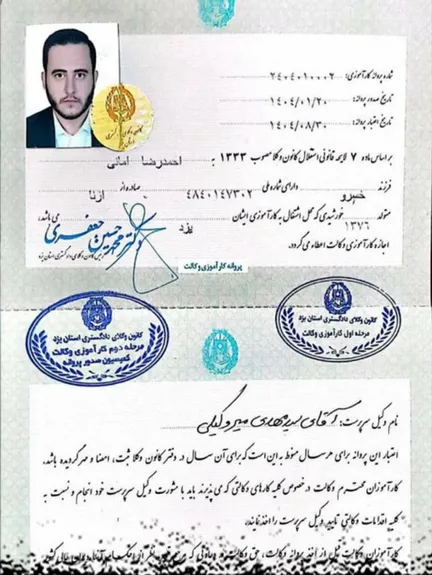 شماره پروانه کارآموزی: ۲۴۰۴۰۱۰۰۰۲
تاریخ صدور پروانه: ۱۴۰۴/۰۱/۲۰
تاریخ اعتبار پروانه: ۱۴۰۴/۰۸/۳۰
براساس ماده ۷ لایحه قانونی استقلال کانون وکلا مصوب ۱۳۳۳ به احمدرضا امانی
فرزند خسرو دارای شماره ملی ۴۸۴۰۱۴۷۳۰۲ صادره از ازنا
متولد ۱۳۷۶ خورشیدی که محل اشتغال به کارآموزی ایشان یزد می باشد،
اجازه کارآموزی وکالت اعطاء می گردد.
دکتر محمد حسین جعفری
رئیس کانون وکلای دادگستری استان یزد
پروانه کارآموزی وکالت
کانون وکلای دادگستری استان یزد
مرحله اول کارآموزی وکالت
کانون وکلای دادگستری استان یزد
مرحله دوم کارآموزی وکالت
کمیسیون صدور پروانه
نام وکیل سرپرست: آقای سید مهدی
اعتبار این پروانه برای هر سال منوط به این است که برای آن سال در دفتر کانون وکلا ثبت، امضا و مهر گردیده باشد.
کارآموزان محترم وکالت در خصوص کلیه کارهای وکالتی که می پذیرند باید با مشورت وکیل سرپرست خود انجام و نسبت به
کلیه اقدامات وکالتی تایید وکیل سرپرست را اخذ نمایند.
کارآموزان وکالت قبل از اخذ پروانه وکالت، حق وکالت در